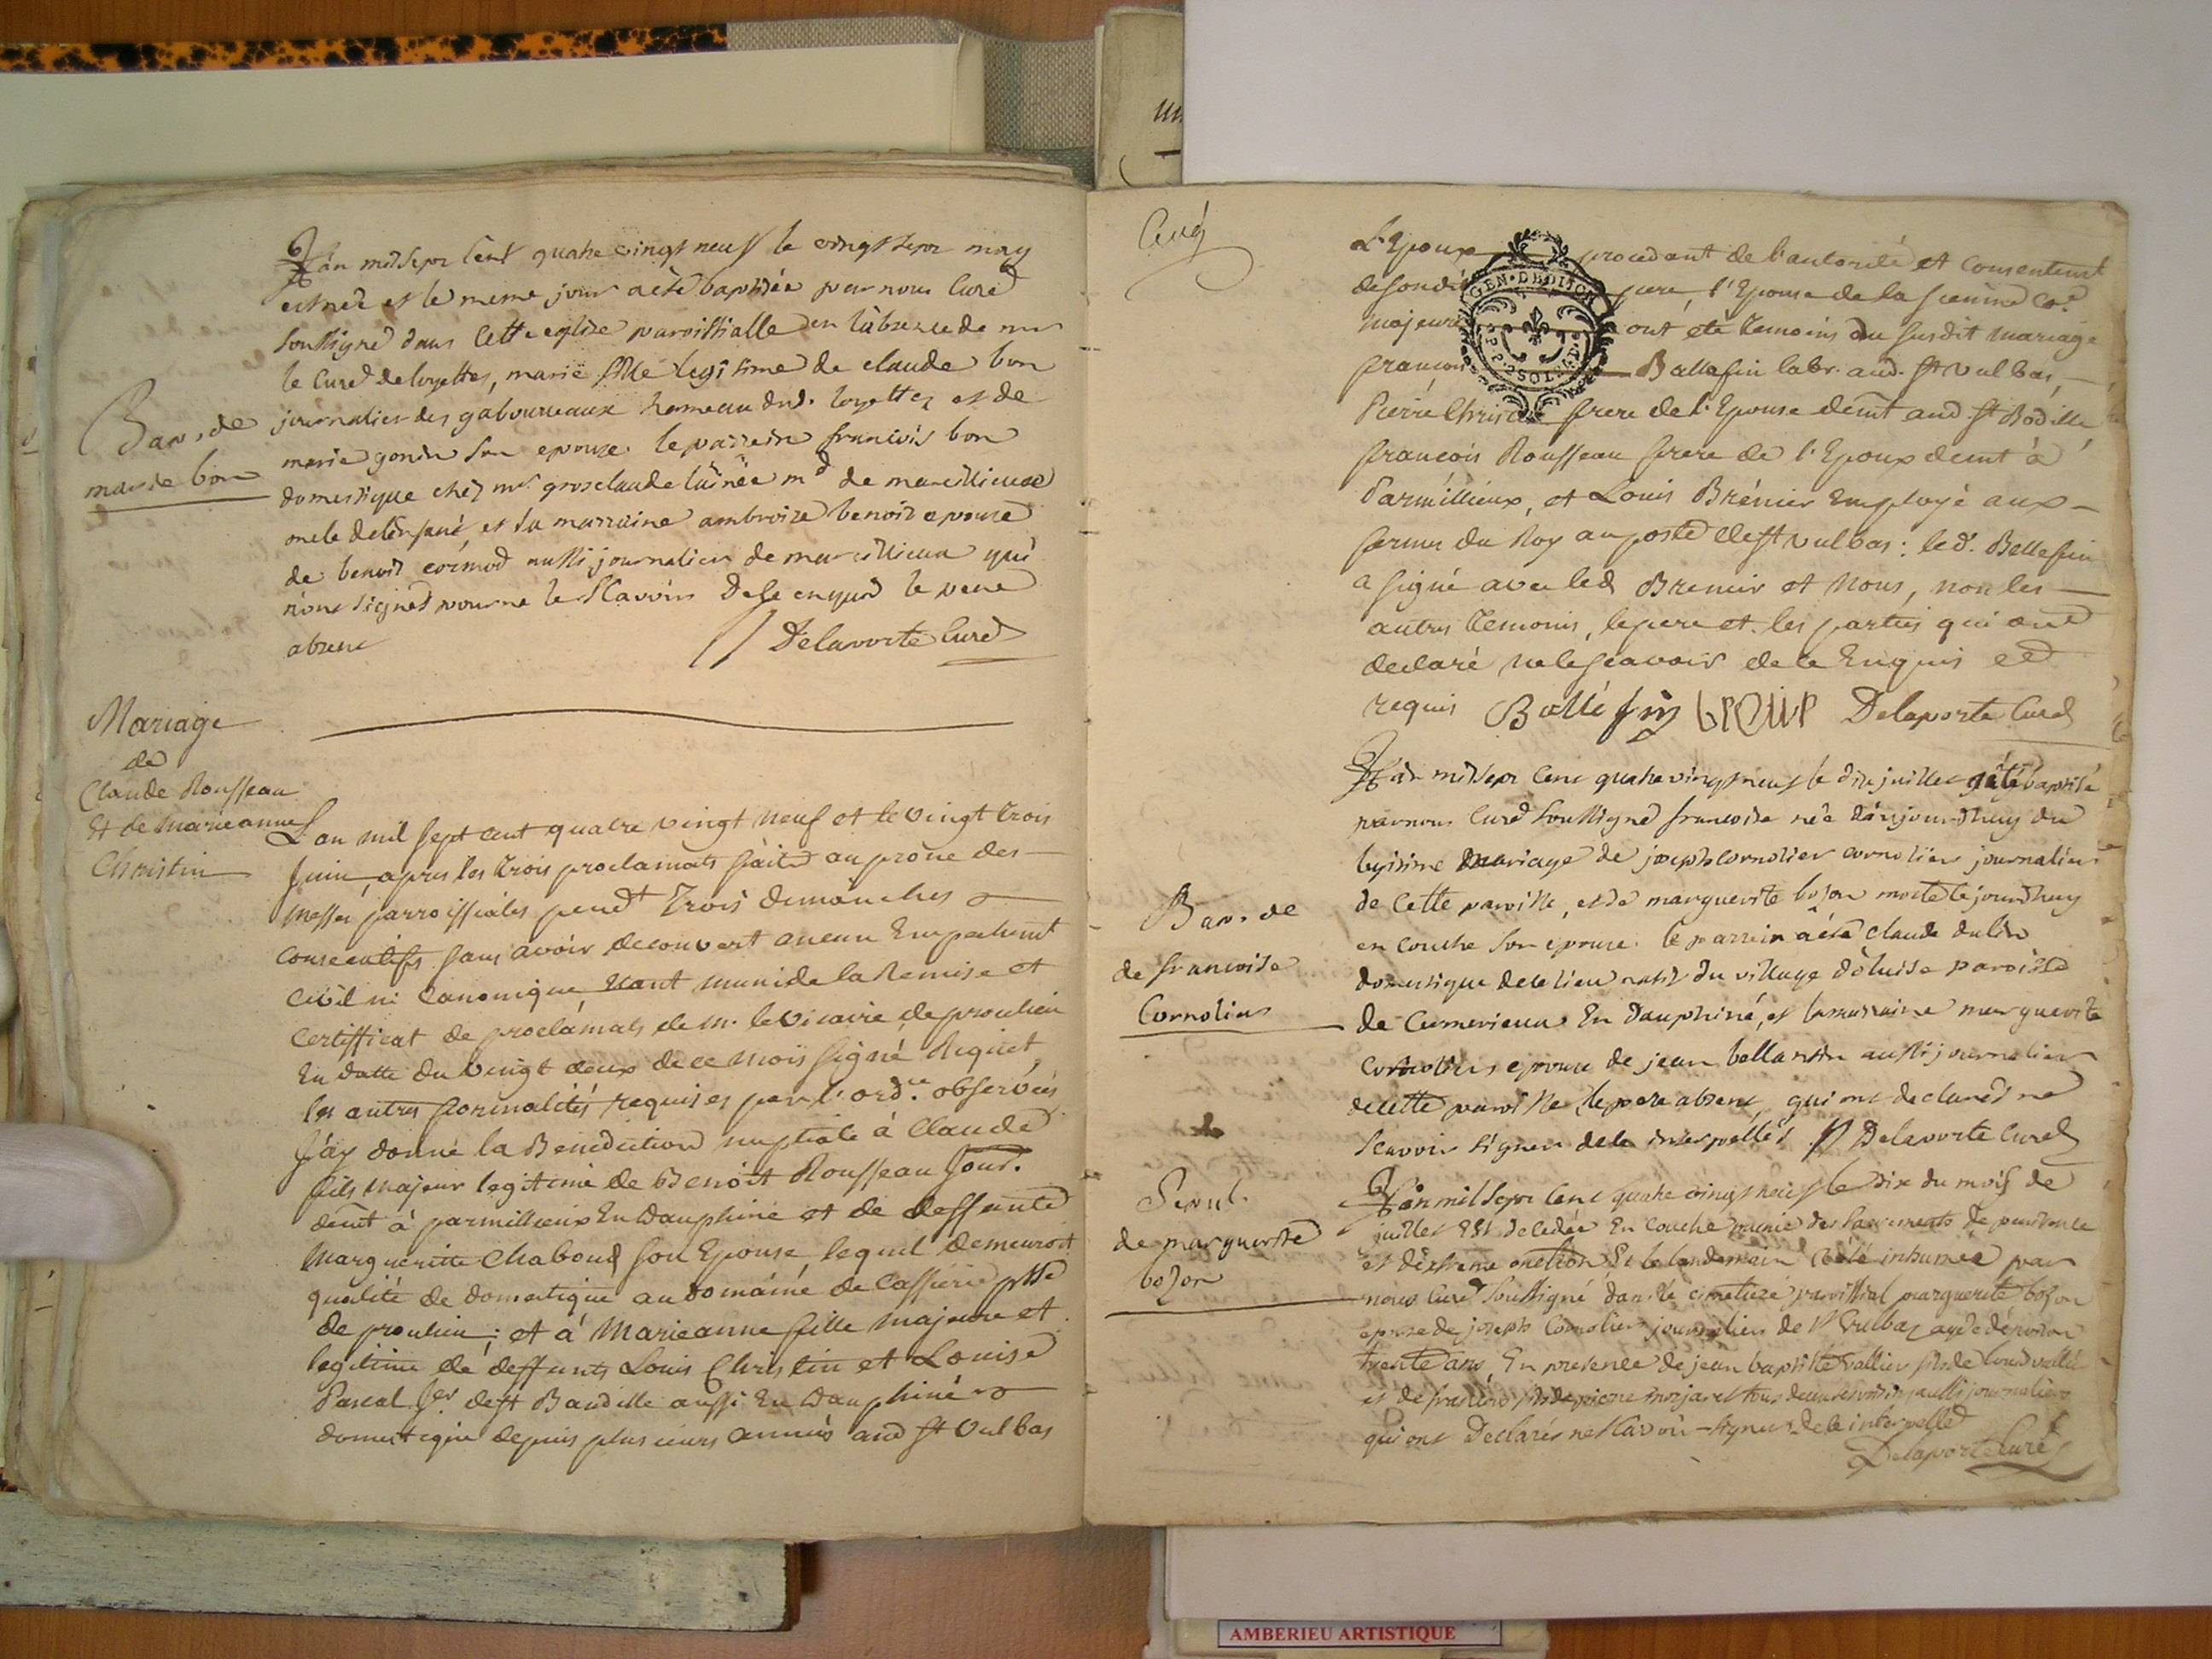 L'an mil sept cent quatre vingt neuf le vingt sept may
est née et le meme jour a été baptisée par nous Curé
soussigné dans cette eglise paroissialle en l'absence de mr
le Curé de loyettes, marie fille legitime de claude bon
journalier des gaboureaux hameau dud. loyettes et de
marie gonin son epouse. le parrein francois bon
domestique chez mr. grosclaude l'ainée md de marcillieux
oncle de l'enfant, et la marraine ambroise benoit epouse
de benoit cormod aussi journalier de marcillieux qui
n'ont signés pour ne le scavoir de ce enquis le pere
absent // Delaporte Curé
Bap. de
marie bon
Mariage
de
Claude Rousseau
Et de Marieanne
Christin
L'an mil sept cent quatre vingt neuf et le vingt trois
Juin, apres les trois proclamats faits au prône des
Messes parroissiales pendt trois dimanches
consecutifs sans avoir decouvert aucun Empechemt
civil ni Canonique, etant muni de la Remise et
Certifficat de proclamats de Mr. le vicaire de proulieu
En datte du vingt deux de ce mois signé Riquet,
les autres formalités requises par l'ordce. observées
J'ay donné la Benediction nuptiale à Claude
fils majeur legitime de Benoit Rousseau Jour.
demt à parmillieux En Dauphiné et de deffunte
Margueritte Chaboud son Epouse, lequel demeuroit
qualité de domestique au domaine de Cassiérie psse
de proulieu; et à Marieanne fille majeure et
legitime de deffunts Louis Christin et Louise
Pascal de st Baudille aussi En Dauphiné
domestique depuis plusieurs années aud St Vulbas
L'Epoux procedant de l'autorité et consentemt
de sondit pere, l'Epouse de la sienne co.
majeure ont été temoins du susdit mariage
francois Ballefin labr. aud. St Vulbas,
Pierre Christin frere de l'Epouse demt aud St Bodille
francois Rousseau frere de l'Epoux demt à
Parmillieux, et Louis Brénier Employé aux
fermes du Roy au poste de st vulbas: led. Bellefin
a signé avec led Brenier et Nous, non les
autres temoins, le pere et les parties qui ont
declaré ne le scavoir de ce Enquis et
requis Balléfin Delaporte Curé
L'an mil sept cent quatre vingt neuf le dix juillet a été baptisé
par nous Curé soussigné francoise née d'aujourdhuy du
legitime mariage de joseph cornolier journalier
de cette paroisse, et de marguerite bozon morte ce jourdhuy
en couche son epouse. le parrein a été claude dulin
domestique de ce lieu natif du village d'oluise paroisse
de Cumerieux En Dauphiné, et la marraine marguerite
cornolier epouse de jean ballansin aussi journalier
de cette paroisse, le pere absent, qui ont declarés ne
scavoir signer de ce interpellés // Delaporte Curé
Bap. de
de francoise
Cornolier
Sepul.
de marguerite
bozon
L'an mil sept cent quatre vingt neuf le dix du mois de
juillet Est decedée En couche munie des sacrements de penitence
et d'extreme onction Et le landemain a été inhumée par
nous Curé soussigné dans le cimetiere paroissial marguerite bozon
epouse de joseph Cornolier journalier de St Vulbas agée d'environ
trente ans, En presence de jean baptiste vallier fils de
et de francois fils de pierre morjaret tous deux aussi journaliers
qui ont declarés ne scavoir signer de ce interpellés
Delaporte Curé
GEN DE DIJON
SOL
AMBERIEU ARTISTIQUE